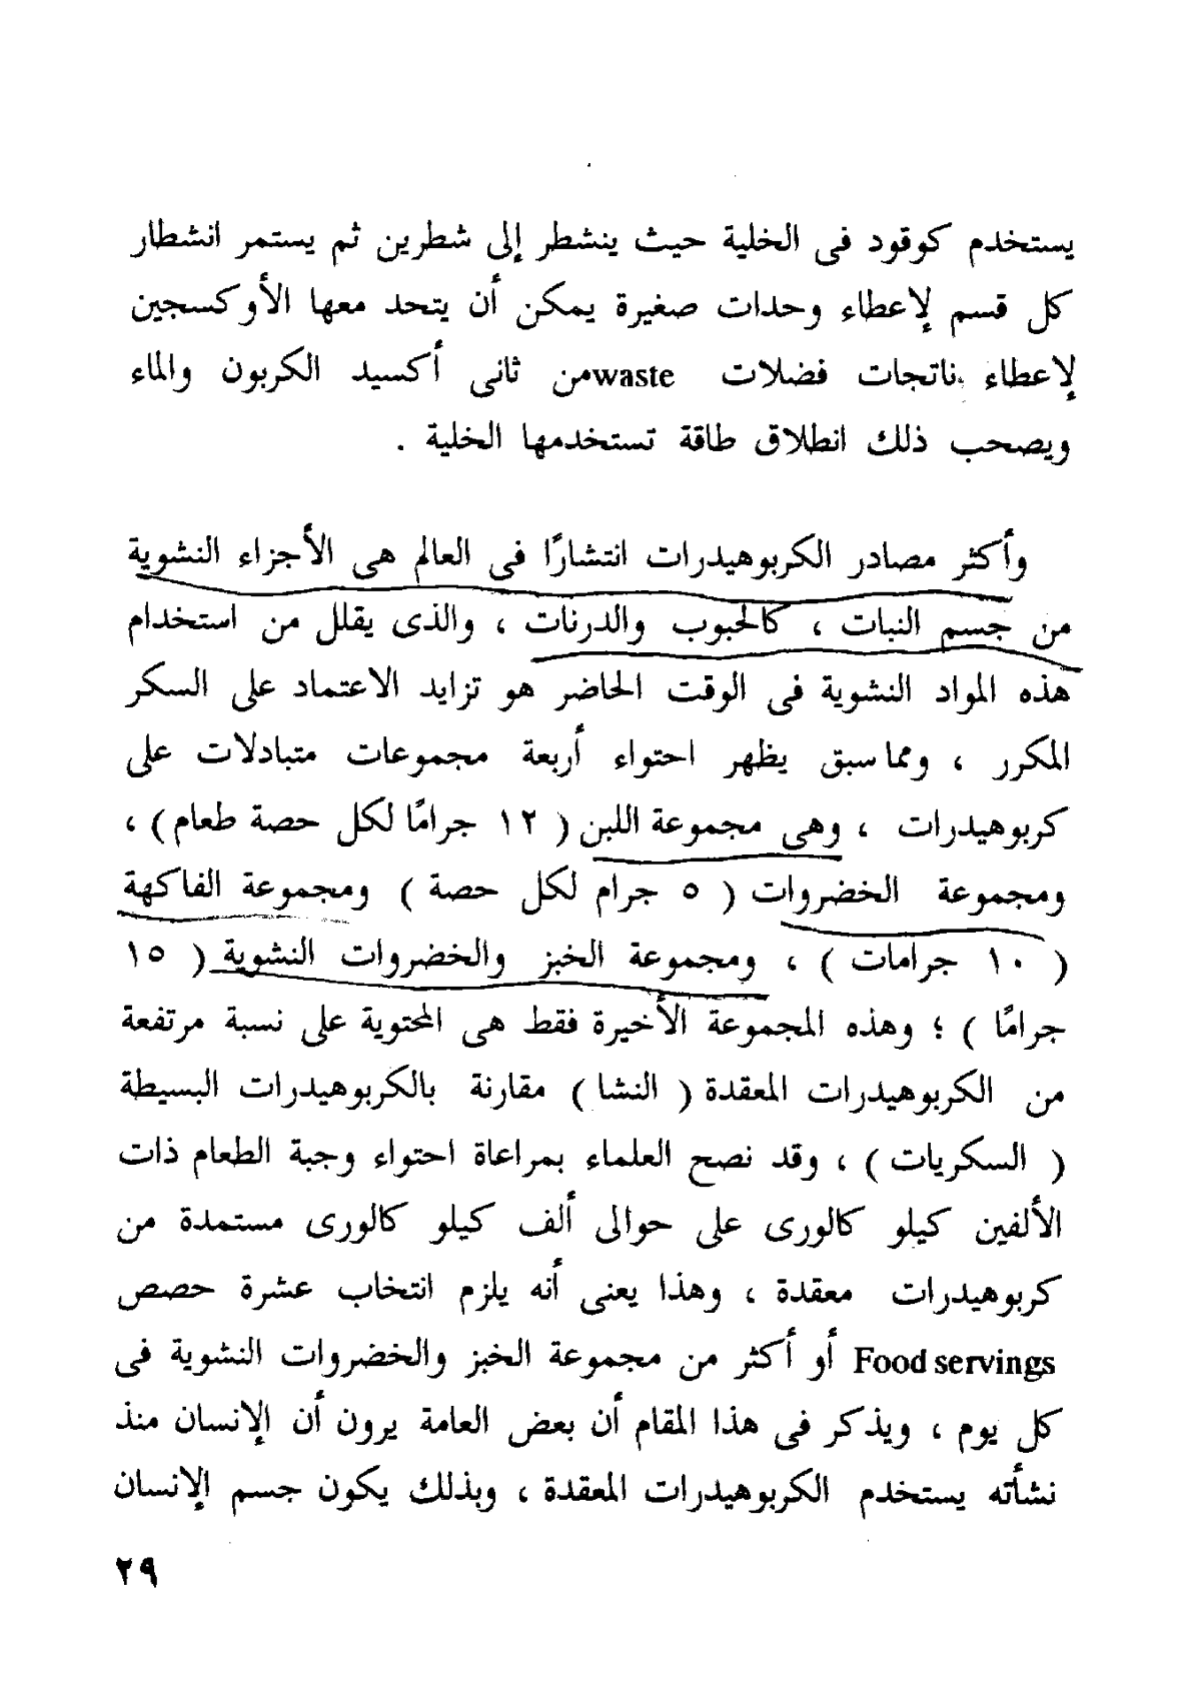 يستخدم كوقود فى الخلية حيث ينشطر إلى شطرين ثم يستمر انشطار
كل قسم لإعطاء وحدات صغيرة يمكن أن يتحد معها الأوكسجين
لإعطاء ناتجات فضلات waste من ثانى أكسيد الكربون والماء
ويصحب ذلك انطلاق طاقة تستخدمها الخلية .
وأكثر مصادر الكربوهيدرات انتشارًا فى العالم هى الأجزاء النشوية
من جسم النبات ، كالحبوب والدرنات ، والذى يقلل من استخدام
هذه المواد النشوية فى الوقت الحاضر هو تزايد الاعتماد على السكر
المكرر ، ومماسبق يظهر احتواء أربعة مجموعات متبادلات على
كربوهيدرات ، وهى مجموعة اللبن ( ١٢ جرامًا لكل حصة طعام ) ،
ومجموعة الخضروات ( ٥ جرام لكل حصة ) ومجموعة الفاكهة
( ١٠ جرامات ) ، ومجموعة الخبز والخضروات النشوية ( ١٥
جرامًا ) ؛ وهذه المجموعة الأخيرة فقط هى المحتوية على نسبة مرتفعة
من الكربوهيدرات المعقدة ( النشا ) مقارنة بالكربوهيدرات البسيطة
( السكريات ) ، وقد نصح العلماء بمراعاة احتواء وجبة الطعام ذات
الألفين كيلو كالورى على حوالى ألف كيلو كالورى مستمدة من
كربوهيدرات معقدة ، وهذا يعنى أنه يلزم انتخاب عشرة حصص
Food servings أو أكثر من مجموعة الخبز والخضروات النشوية فى
كل يوم ، ويذكر فى هذا المقام أن بعض العامة يرون أن الإنسان منذ
نشأته يستخدم الكربوهيدرات المعقدة ، وبذلك يكون جسم الإنسان
٢٩